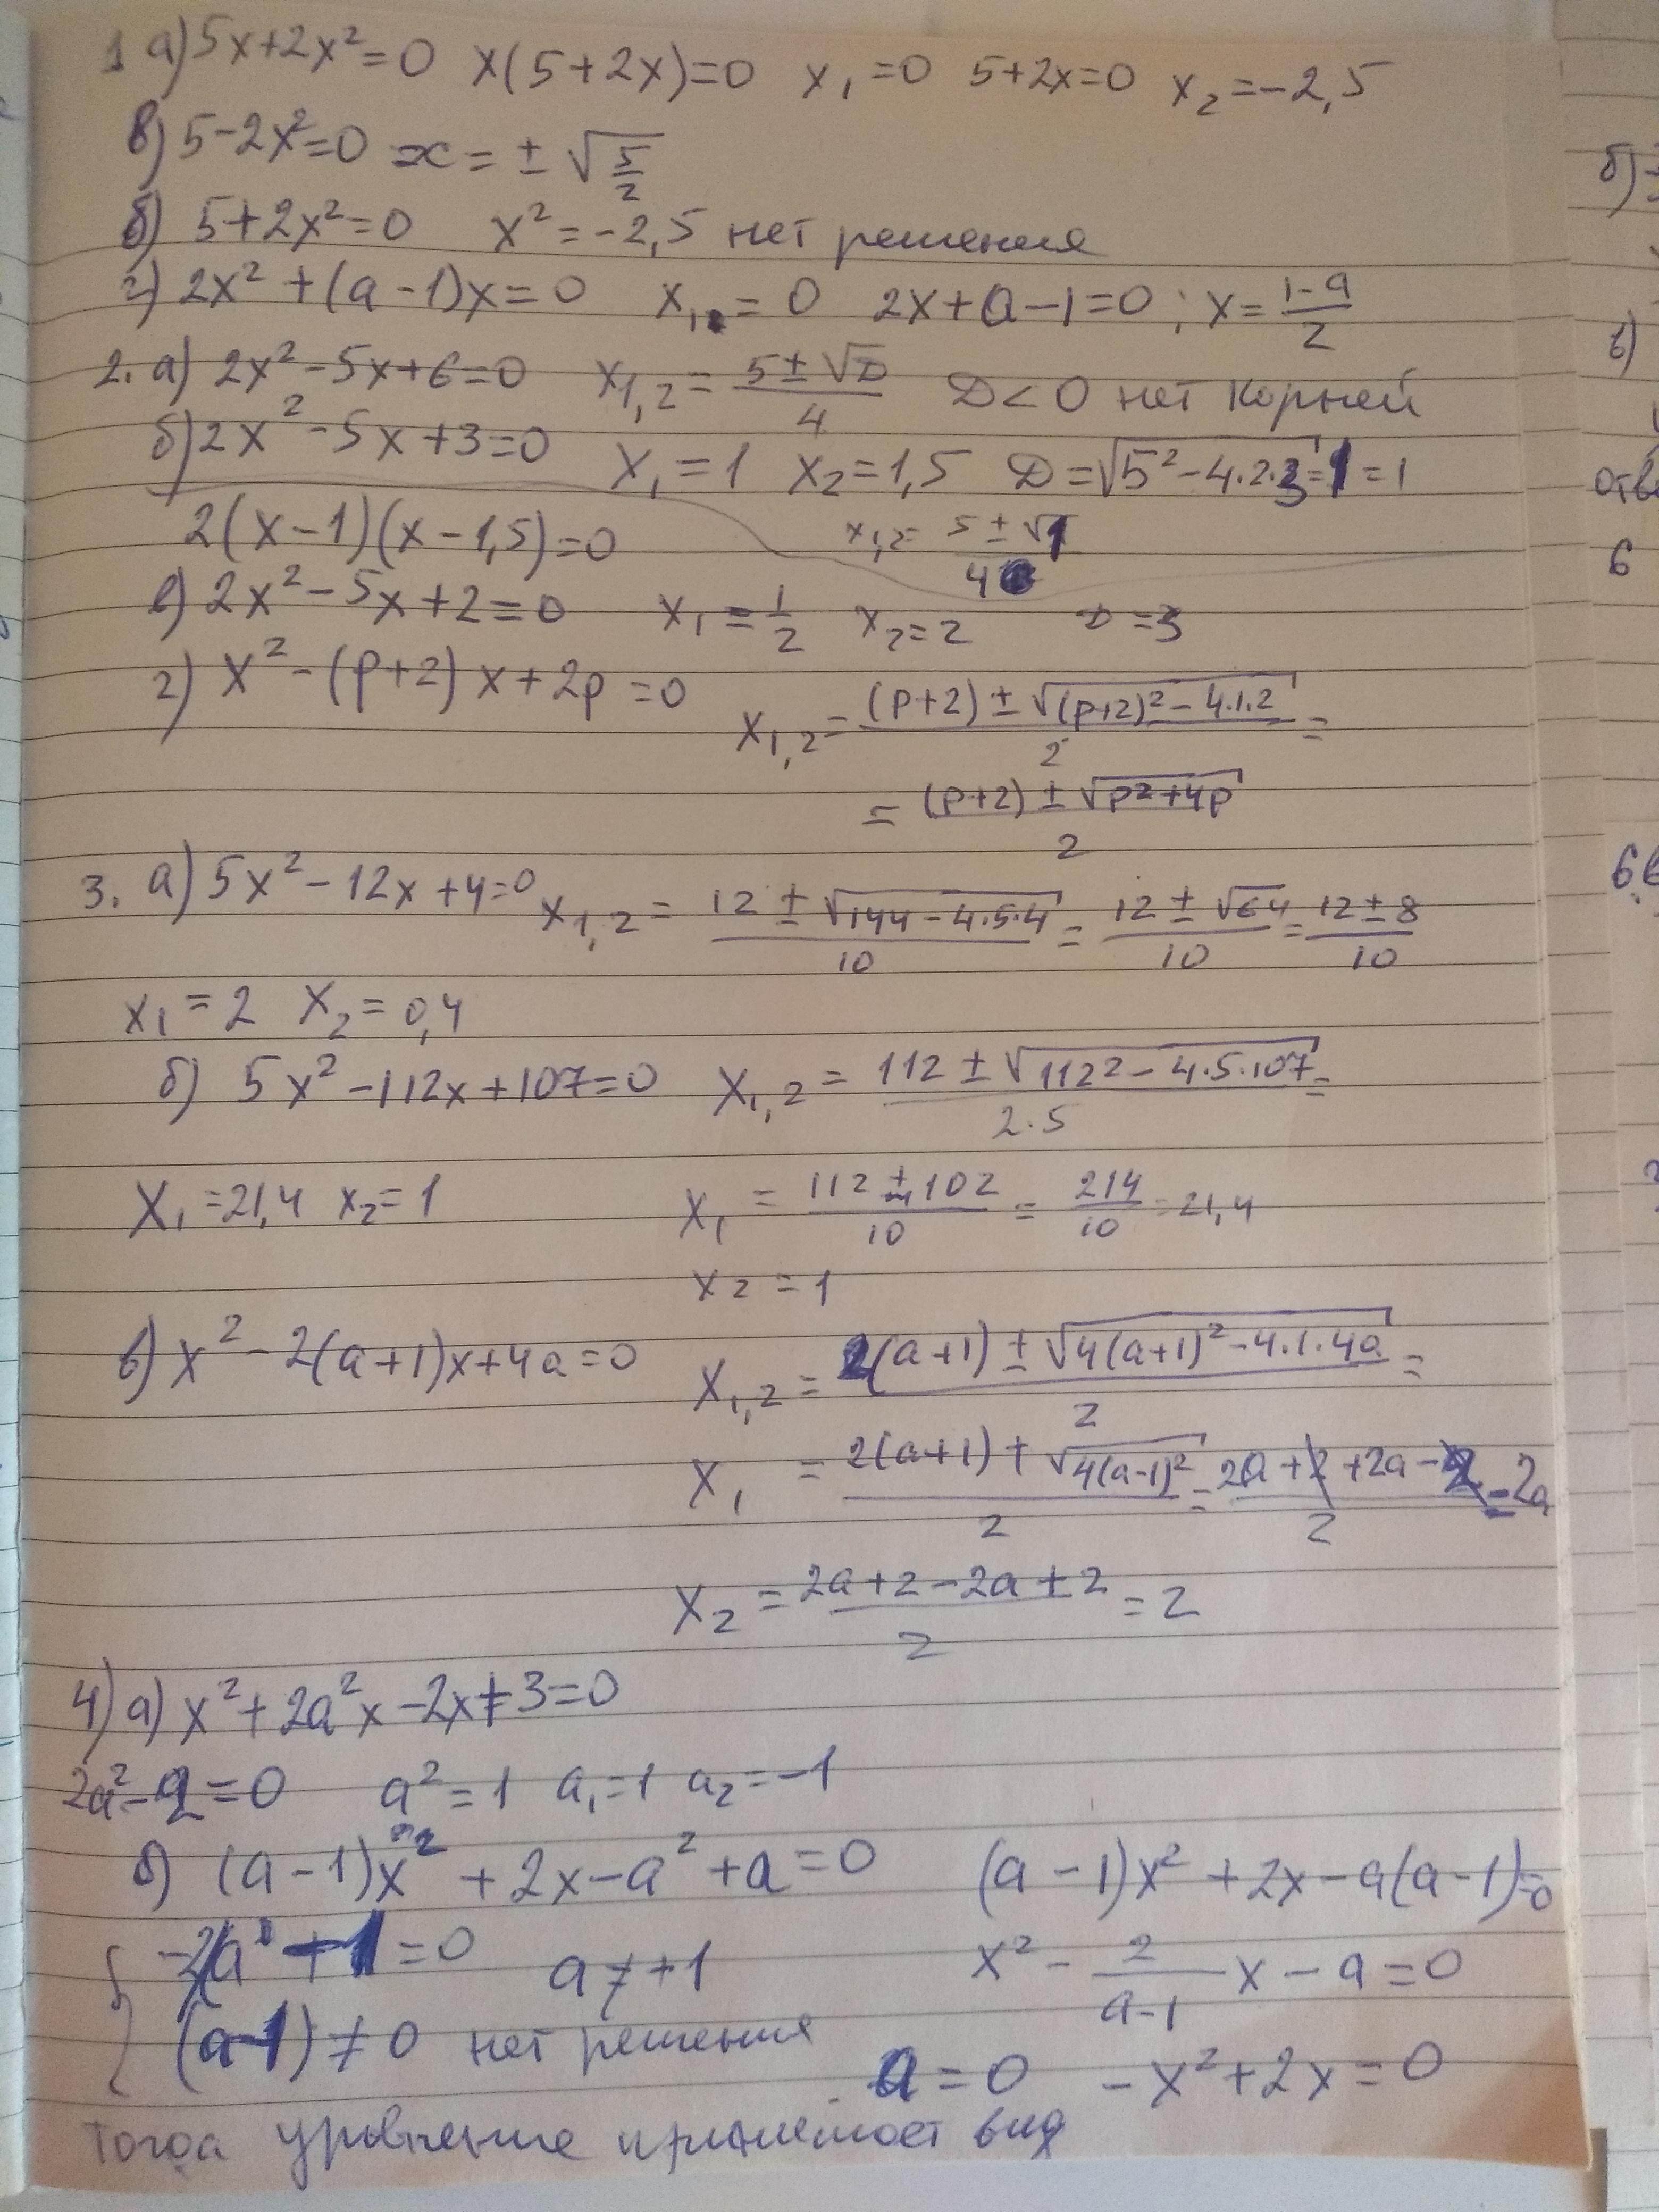 1 а) 5x+2x²=0 x(5+2x)=0 x₁=0 5+2x=0 x₂=-2,5
в) 5-2x²=0 x=±√(5/2)
б) 5+2x²=0 x²=-2,5 нет решения
г) 2x²+(a-1)x=0 x₁=0 2x+a-1=0; x=(1-a)/2
2. а) 2x²-5x+6=0 x₁,₂=(5±√D)/4 D<0 нет корней
б) 2x²-5x+3=0 x₁=1 x₂=1,5 D=√(5²-4·2·3)=1=1
2(x-1)(x-1,5)=0 x₁,₂=(5±√1)/4
в) 2x²-5x+2=0 x₁=1/2 x₂=2 D=3
г) x²-(p+2)x+2p=0 x₁,₂=((p+2)±√((p+2)²-4·1·2))/2=
=((p+2)±√(p²+4p))/2
3. а) 5x²-12x+4=0 x₁,₂=(12±√(144-4·5·4))/10=(12±√64)/10=(12±8)/10
x₁=2 x₂=0,4
б) 5x²-112x+107=0 x₁,₂=(112±√(112²-4·5·107))/(2·5)=
x₁=21,4 x₂=1 x₁=(112±102)/10=214/10=21,4
x₂=1
в) x²-2(a+1)x+4a=0 x₁,₂=(2(a+1)±√(4(a+1)²-4·1·4a))/2=
x₁=(2(a+1)+√(4(a-1)²))/2=(2a+2+2a-2)/2=2a
x₂=(2a+2-2a+2)/2=2
4) а) x²+2a²x-2x+3=0
2a²-2=0 a²=1 a₁=1 a₂=-1
б) (a-1)x²+2x-a²+a=0 (a-1)x²+2x-a(a-1)=0
a≠+1 x²-2/(a-1)x-a=0
(a-1)≠0 нет решения
a=0 -x²+2x=0
Тогда уравнение принемает вид
б)
в)
отв
6
6в